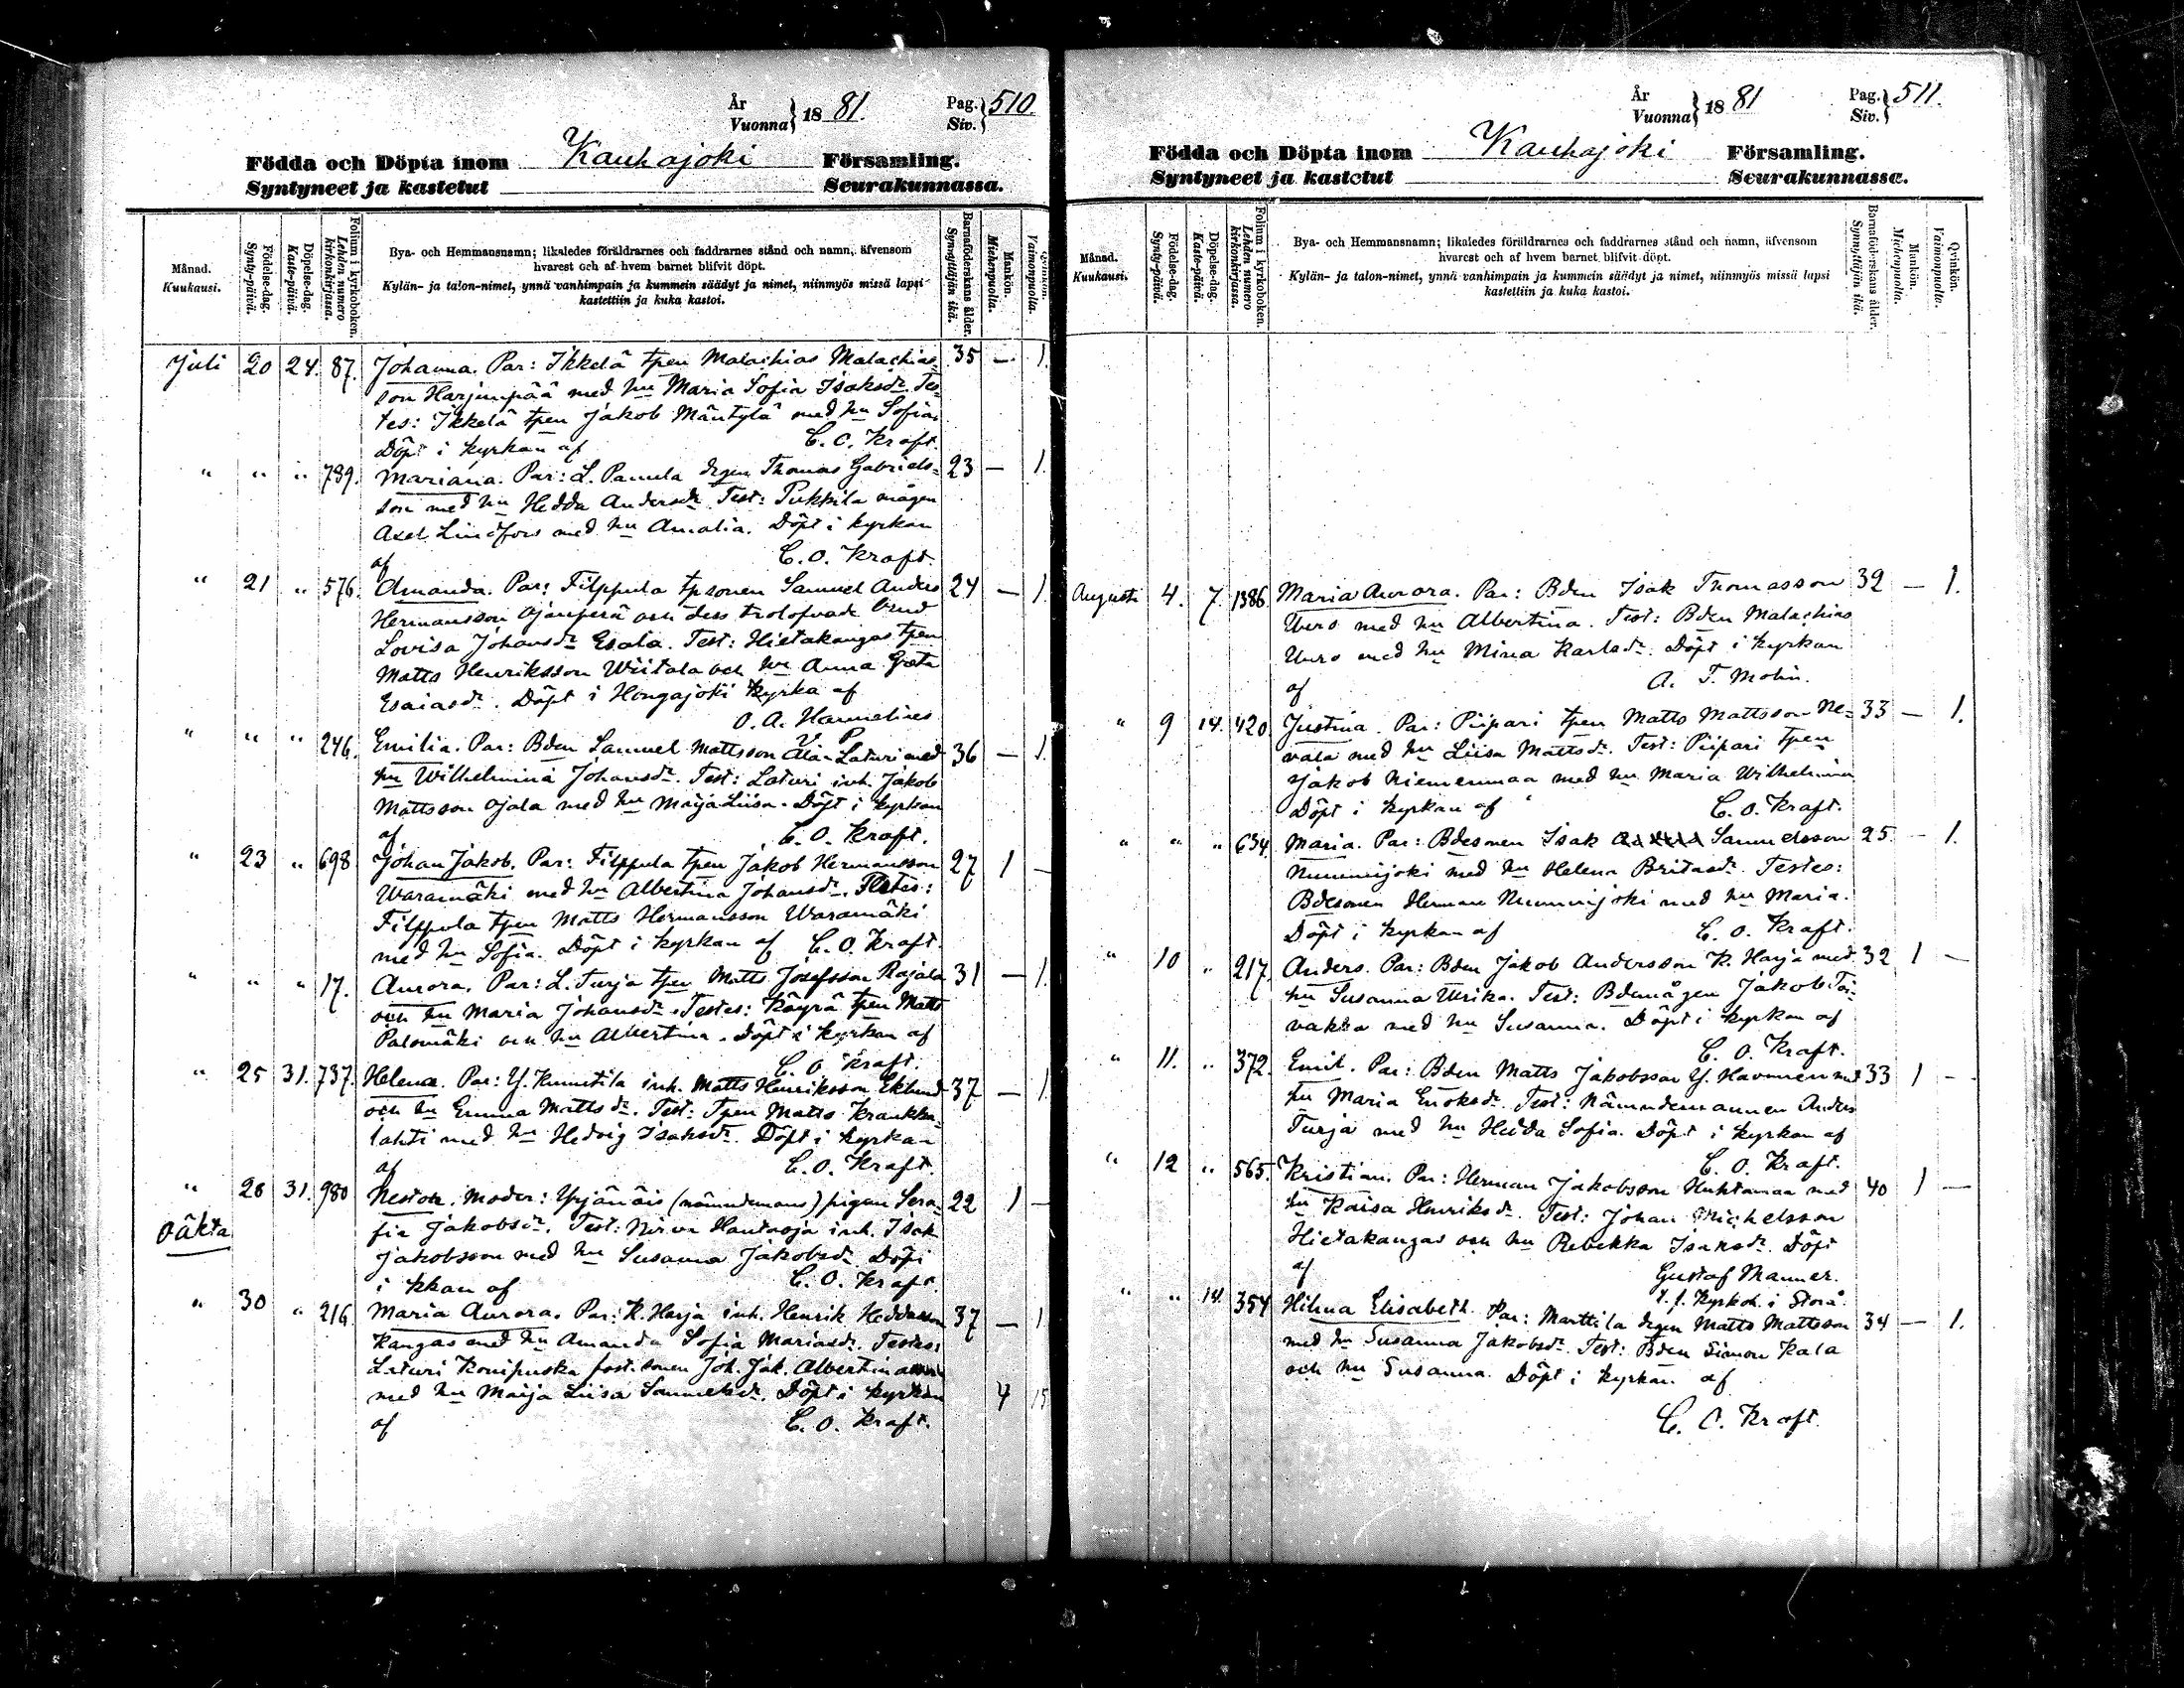 År
Vuonna } 18 81. Pag. Siv. } 510.
Födda och Döpta inom Kauhajoki Församling.
Syntyneet ja kastetut Seurakunnassa.
Månad.
Kuukausi.
Födelse-dag.
Synty-päivä.
Döpelse-dag.
Kaste-päivä.
Folium i kyrkoboken.
Lehden numero kirkonkirjassa.
Bya- och Hemmansnamn; likaledes föräldrarnes och faddrarnes stånd och namn, äfvensom
hvarest och af hvem barnet blifvit döpt.
Kylän- ja talon-nimet, ynnä vanhimpain ja kummein säädyt ja nimet, niinmyös missä lapsi
kastettiin ja kuka kastoi.
Barnaföderskans ålder.
Synnyttäjän ikä.
Mankön.
Miehenpuolta.
Qvinkön.
Vaimonpuolta.
Juli 20 24. 87. Johanna. Par: Ikkelä tpen Malachias Malachias- 35 — 1.
son Harjunpää med hu Maria Sofia Isaksdr. Tes-
tes: Ikkelä tpen Jakob Mäntylä med hu Sofia.
Döpt i kyrkan af C. O. Kraft.
" " " 789. Mariana. Par: L. Panula drgen Thomas Gabriels- 23 — 1.
son med hu Hedda Andersdr. Test: Pukkila mågen
Axel Lindfors med hu Amalia. Döpt i kyrkan
af C. O. Kraft.
" 21 " 576. Amanda. Par: Filppula tpsonen Samuel Anders 24 — 1.
Hermansson Ojanperä och dess trolofvade brud
Lovisa Johansdr Esala. Test: Hietakangas tpen
Matts Henriksson Wiitala och hu Anna Greta
Esaiasdr. Döpt i Hongajoki kyrka af
O. A. Hannelius
V. P.
" " " 246. Emilia. Par: Bden Samuel Mattsson Ala-Laturi med 36 — 1.
hu Wilhelmina Johansdr. Test: Laturi inh. Jakob
Mattsson Ojala med hu Maija Liisa. Döpt i kyrkan
af C. O. Kraft.
" 23 " 698 Johan Jakob. Par: Filppula tpen Jakob Hermansson 27 1 —
Waramäki med hu Albertina Johansdr. Testes:
Filppula tpen Matts Hermansson Waramäki
med hu Sofia. Döpt i kyrkan af C. O. Kraft.
" " " 17. Aurora. Par: L. Turja tpen Matts Josefsson Rajala 31 — 1.
och hu Maria Johansdr. Testes: Käyrä tpen Matts
Palomäki och hu Albertina. Döpt i kyrkan af
C. O. Kraft.
" 25 31. 737. Helena. Par: Y. Knuutila inh. Matts Henriksson Eklund 37 — 1
och hu Emma Mattsdr. Test: Tpen Matts Kraukka-
lahti med hu Hedvig Isaksdr. Döpt i kyrkan
af C. O. Kraft.
" 26 31. 980 Nestor. Moder: Yrjänäis (nämndemans) pigan Sera- 22 1 —
oäkta fia Jakobsdr. Test: Nirva Hautaoja inh. Isak
Jakobsson med hu Susanna Jakobsdr. Döpt
i kkan af C. O. Kraft.
" 30 " 216. Maria Aurora. Par: K. Harja inh. Henrik Heddasson 37 — 1
Kangas med hu Amanda Sofia Mariasdr. Testes:
Laturi Konipuska fost. sonen Joh. Jak. Albertin
med hu Maija Liisa Samuelsdr. Döpt i kyrkan 4 15
af C. O. Kraft.
År
Vuonna } 18 81 Pag. Siv. } 511.
Födda och Döpta inom Kauhajoki Församling.
Syntyneet ja kastetut Seurakunnassa.
Månad.
Kuukausi.
Födelse-dag.
Synty-päivä.
Döpelse-dag.
Kaste-päivä.
Folium i kyrkoboken.
Lehden numero kirkonkirjassa.
Bya- och Hemmansnamn; likaledes föräldrarnes och faddrarnes stånd och namn, äfvensom
hvarest och af hvem barnet blifvit döpt.
Kylän- ja talon-nimet, ynnä vanhimpain ja kummein säädyt ja nimet, niinmyös missä lapsi
kastettiin ja kuka kastoi.
Barnaföderskans ålder.
Synnyttäjän ikä.
Mankön.
Miehenpuolta.
Qvinkön.
Vaimonpuolta.
Augusti 4. 7. 1386 Maria Aurora. Par: Bden Isak Thomasson 32 — 1.
Uuro med hu Albertina. Test: Bden Malachias
Uuro med hu Mina Karlsdr. Döpt i kyrkan
af A. F. Molin.
" 9 14. 420 Justina. Par: Piipari tpen Matts Mattsson Ne- 33 — 1.
vala med hu Liisa Mattsdr. Test: Piipari tpen
Jakob Niemenmaa med hu Maria Wilhelmina
Döpt i kyrkan af C. O. Kraft.
" " " 634. Maria. Par: Bdesonen Isak Samuelsson 25. — 1.
Nummijoki med hu Helena Britasdr. Testes:
Bdesonen Herman Nummijoki med hu Maria.
Döpt i kyrkan af C. O. Kraft.
" 10 " 217. Anders. Par: Bden Jakob Andersson K. Harja med 32 1 —
hu Susanna Ulrika. Test: Bdemågen Jakob Toi-
vakka med hu Susanna. Döpt i kyrkan af
C. O. Kraft.
" 11. " 372. Emil. Par: Bden Matts Jakobsson Y. Havunen med 33 1 —
hu Maria Enoksdr. Test: Nämndemannen Anders
Turja med hu Hedda Sofia. Döpt i kyrkan af
C. O. Kraft.
" 12 " 565. Kristian. Par: Herman Jakobsson Huhtamaa med 40 1 —
hu Kaisa Henriksdr. Test: Johan Michelsson
Hietakangas och hu Rebekka Isaksdr. Döpt
af Gustaf Manner.
t. f. kyrkoh. i Storå.
" " 14. 354 Hilma Elisabeth. Par: Marttila drgen Matts Mattsson 34 — 1.
med hu Susanna Jakobsdr. Test: Bden Simon Kala
och hu Susanna. Döpt i kyrkan af
C. O. Kraft.